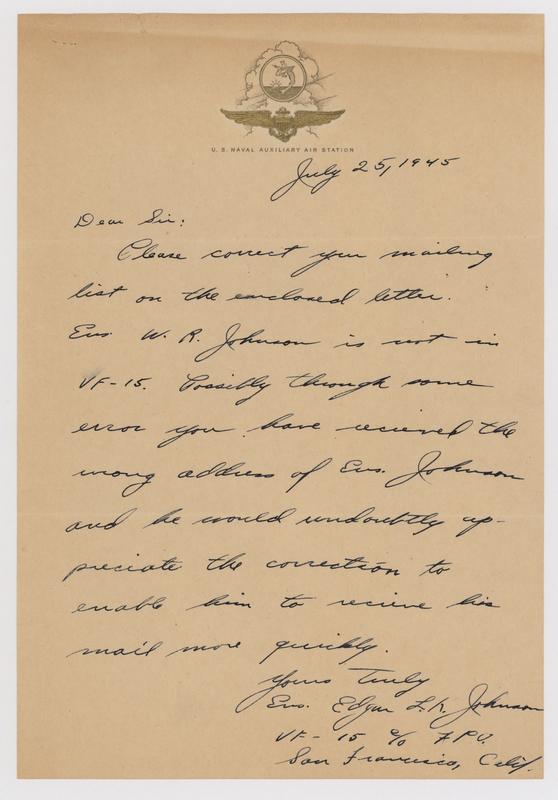 U. S. NAVAL AUXILIARY AIR STATION
July 25, 1945
Dear Sir:
Please correct your mailing
list on the enclosed letter.
Ens W. R. Johnson is not in
VF-15. Possibly through some
error you have recieved the
wrong address of Ens. Johnson
and he would undoubtly ap-
preciate the correction to
enable him to recieve his
mail more quickly.
Yours Truly
Ens. Edgar L. R. Johnson
VF-15 c/o F.P.O.
San Francisco, Calif.